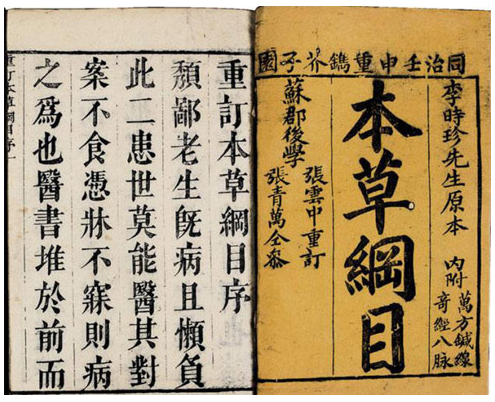 同治壬申重鐫芥子園
李時珍先生原本
內附
萬方鍼線
奇經八脉
本草綱目
張雲中重訂
蘇郡後學
張青萬仝叅
重訂本草綱目序
頹鄙老生旣病且懶負
此二患世莫能醫其對
案不食憑牀不寐則病
之爲也醫書堆於前而
重訂本草綱目序一